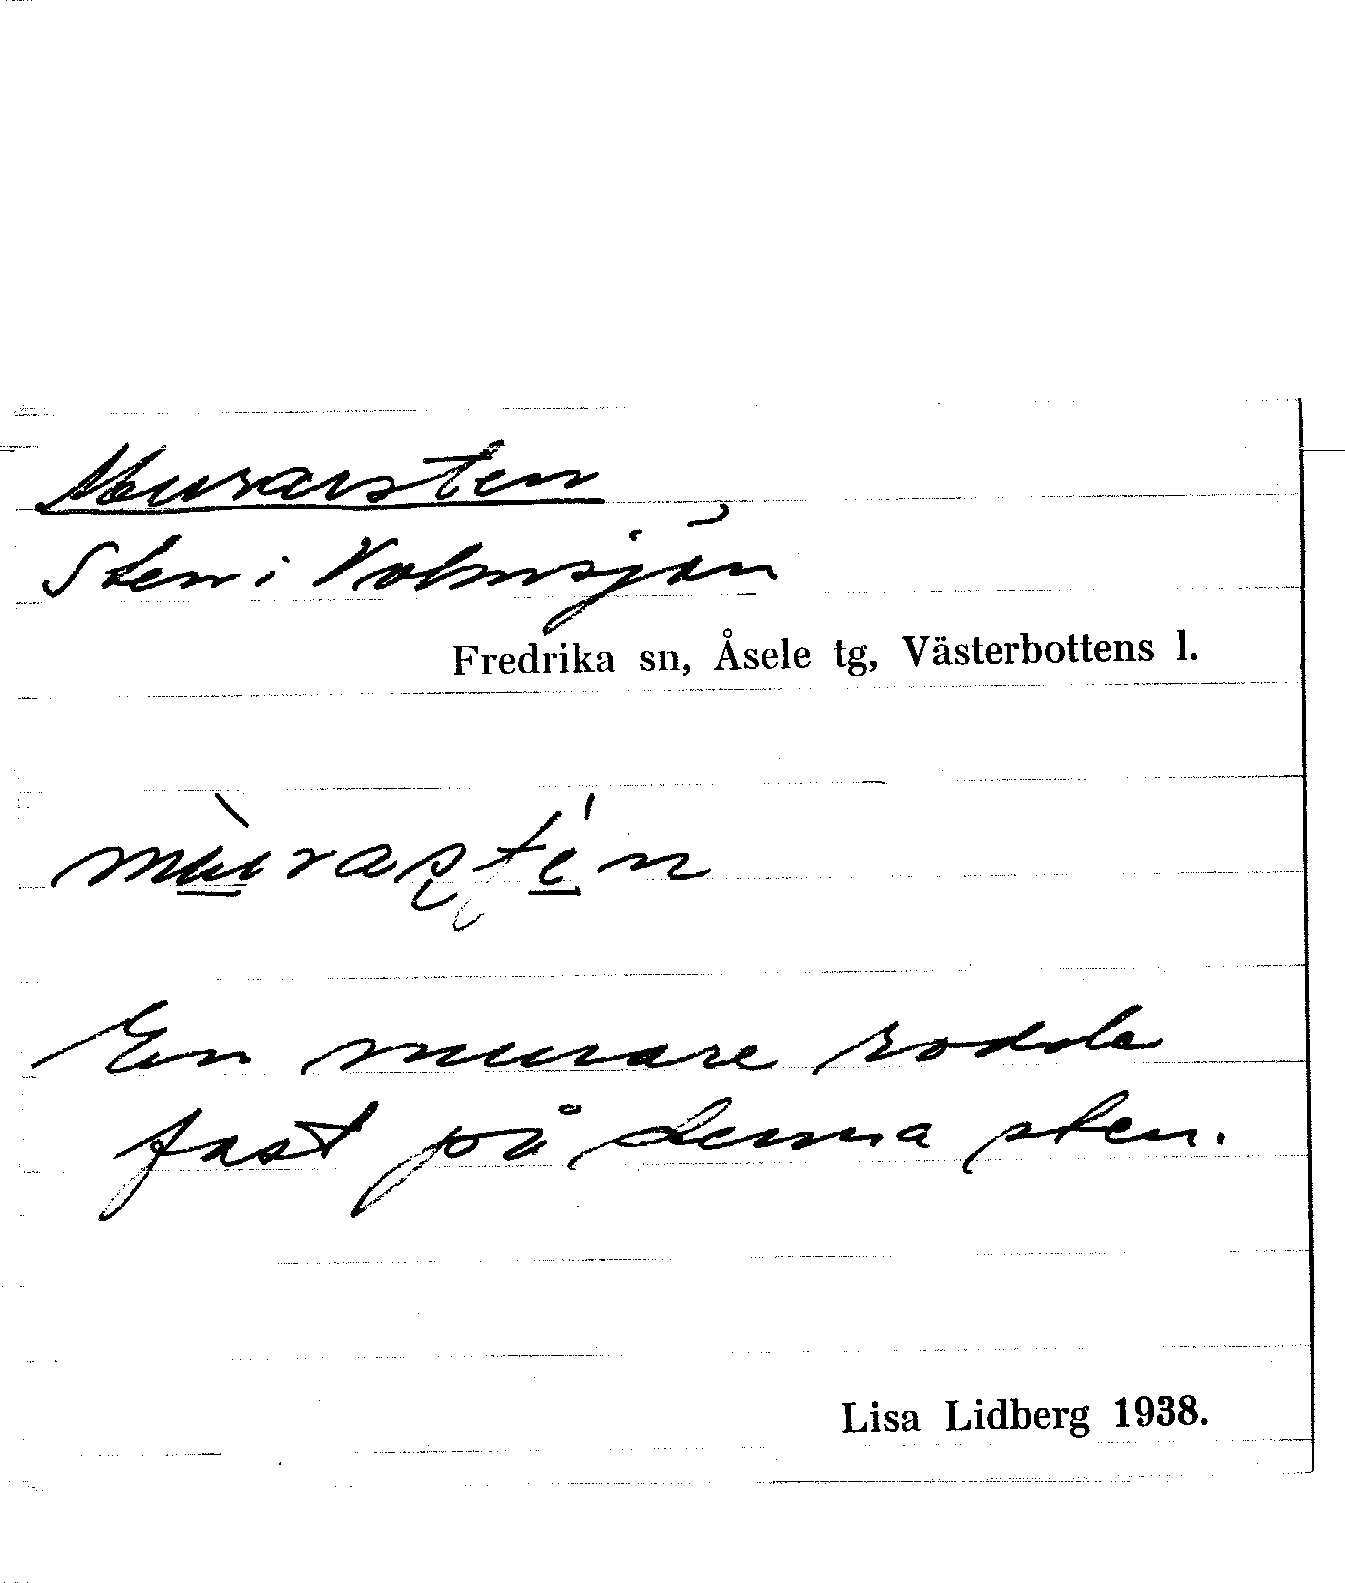 Murarsten
Sten i Volmsjön
Fredrika sn, Åsele tg, Västerbottens l.
En murare rodde
fast på denna sten.
Lisa Lidberg 1938.